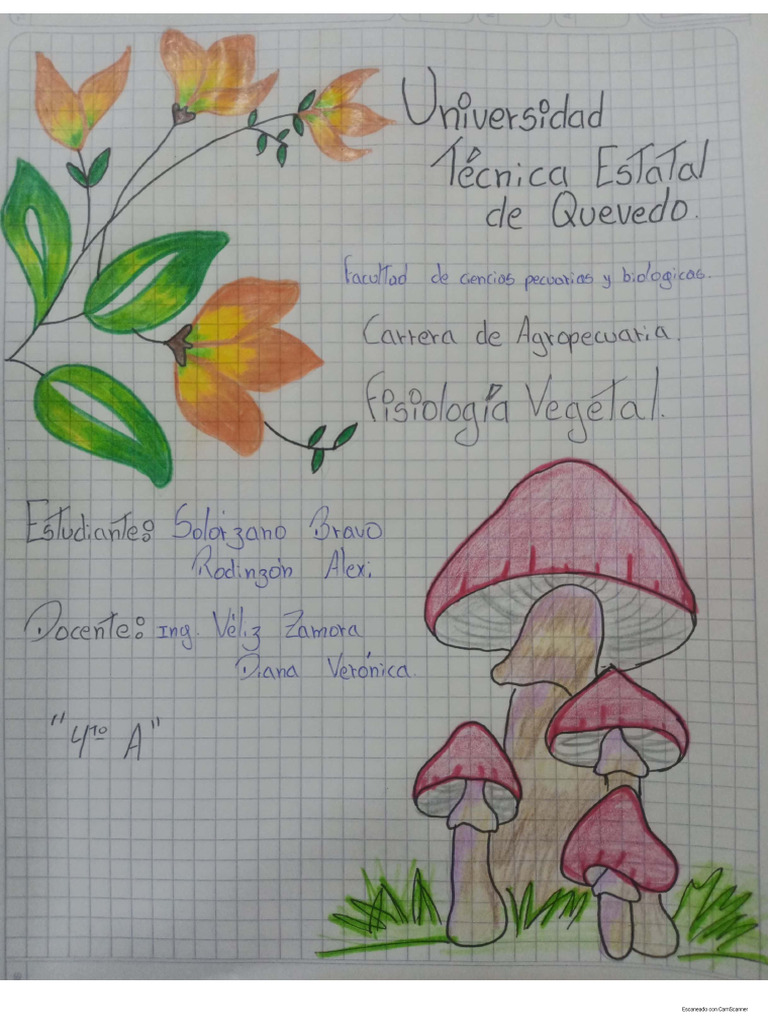 Universidad
Técnica Estatal
de Quevedo.
Facultad de ciencias pecuarias y biologicas.
Carrera de Agropecuaria.
Fisiología Vegetal.
Estudiante: Solórzano Bravo
Rodinzón Alexi.
Docente: Ing. Véliz Zamora
Diana Verónica.
"4to A"
Escaneado con CamScanner